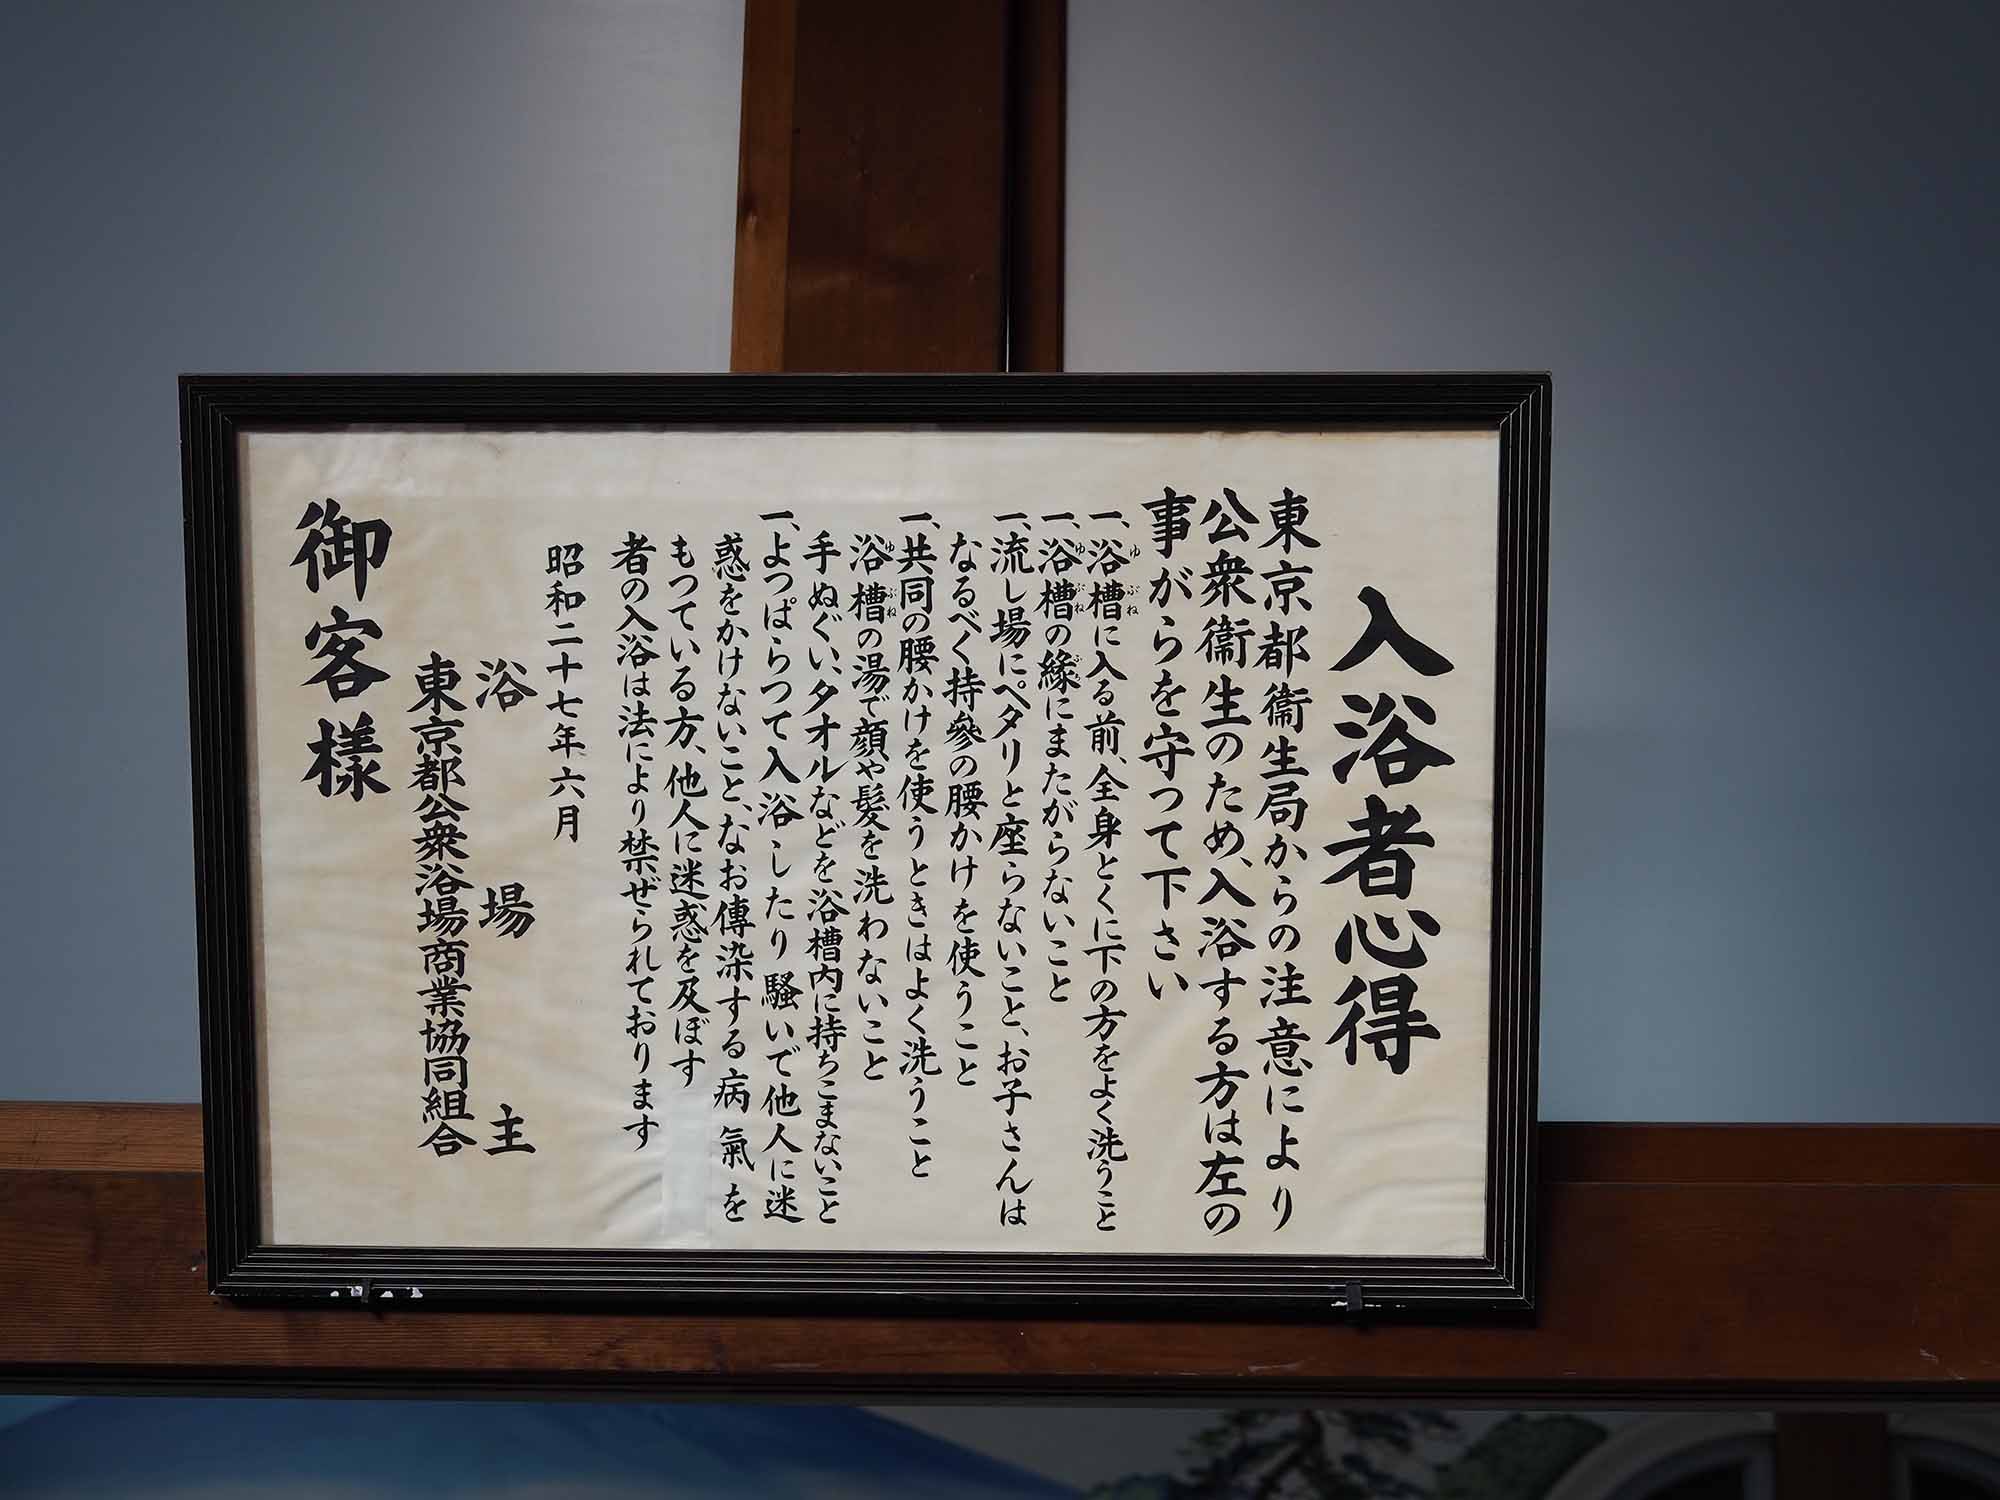 入浴者心得
東京都衞生局からの注意により
公衆衞生のため、入浴する方は左の
事がらを守つて下さい
一、浴槽に入る前、全身とくに下の方をよく洗うこと
一、浴槽の縁にまたがらないこと
一、流し場にペタリと座らないこと、お子さんは
なるべく持參の腰かけを使うこと
一、共同の腰かけを使うときはよく洗うこと
浴槽の湯で顔や髪を洗わないこと
手ぬぐい、タオルなどを浴槽内に持ちこまないこと
一、よつぱらつて入浴したり騒いで他人に迷
惑をかけないこと、なお傳染する病氣を
もつている方、他人に迷惑を及ぼす
者の入浴は法により禁ぜられております
昭和二十七年六月
浴場主
東京都公衆浴場商業協同組合
御客様